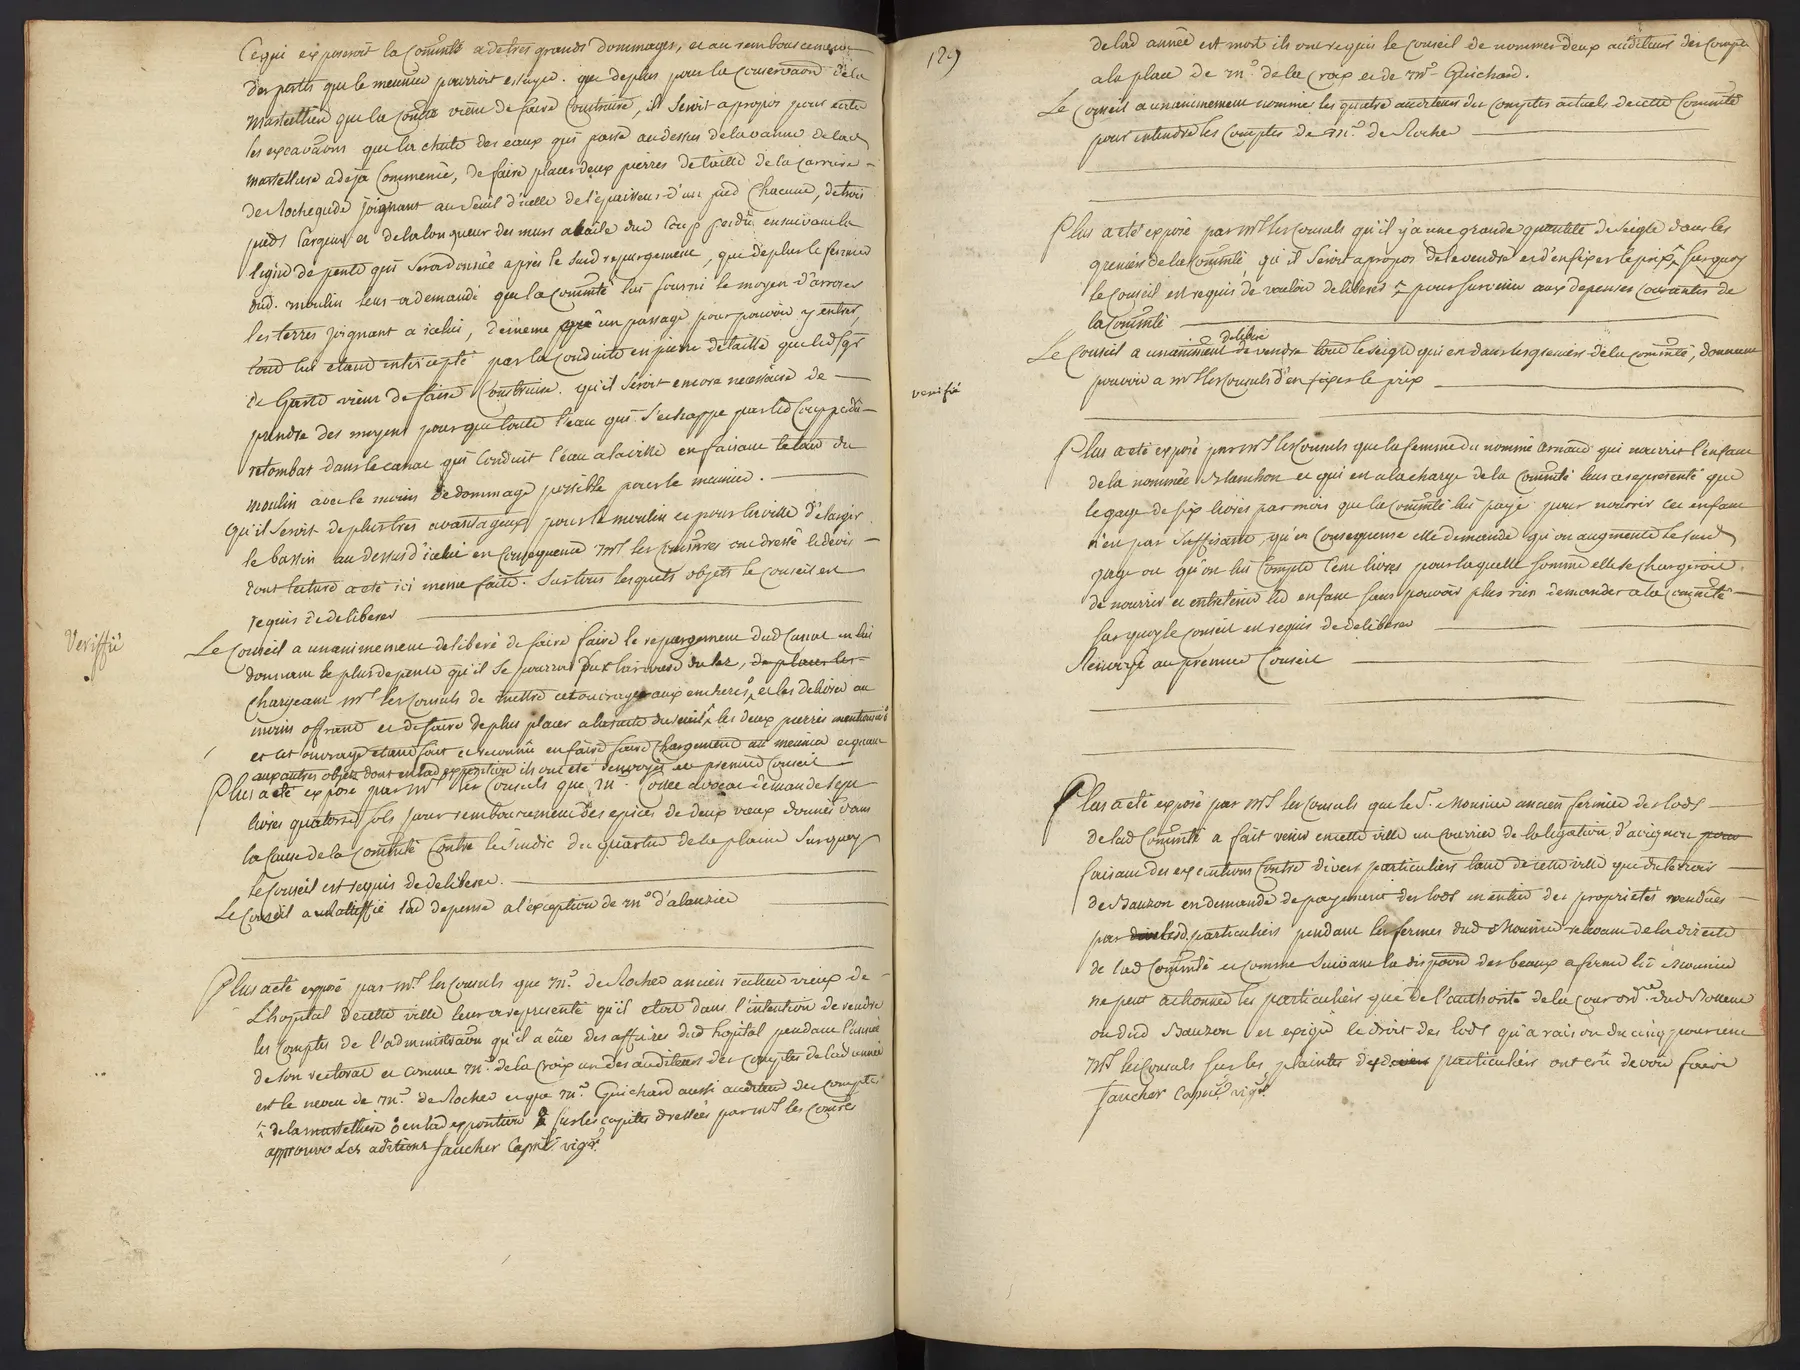 Ce qui exposeroit la Com̃unté a de tres grands dommages, et au remboursement
des pertes que le meunier pourroit essuyer. que de plus pour la Conservaõn de la
martelliere que la Com̃té vient de faire Construire, il seroit a propos pour eviter
les excavaõns que la chute des eaux qui passe au dessus de la vanne de lad
martelliere a deja Commencé, de faire placer deux pierres de taille de la Carriere
de Rochegude joignant au seuil d'icelle de l'épaisseur d'un pied Chacune, de trois
pieds largeur et de la longueur des murs a laile dud Coup perdu en suivant la
ligne de pente qui sera donnée après le susd repurgement, que de plus le fermier
dud. moulin leur a demandé que la Com̃unté lui fourni le moyen d'arroser
les terres joignant a icelui, de meme que un passage pour pouvoir y entrer,
tout lui etant intercepté par la Conduite en pierre de taille que led sgr
de Gard vient de faire Construire. qu'il seroit encore necessaire de
prendre des moyens pour que toute l'eau qui s'echappe par led Coup perdu
retombat dans le canal qui Conduit l'eau a la ville en faisant le tour du
moulin avec le moins de dommage possible pour le meunier.
Qu'il seroit de plus tres avantageux pour le moulin et pour la ville d'elargir
le bassin au dessus d'icelui en Consequence Mrs les Consuls ont dressé le devis
dont lecture a eté ici meme faite. Sur tous lesquels objets le Conseil est
requis de deliberer
Veriffié
Le Conseil a unanimement deliberé de faire faire le repurgement dud Canal en lui
donnant le plus de pente qu'il se pourra, de placer les
Chargeant Mrs les Consuls de mettre cet ouvrage aux encheres, et les delivrer au
moins offrant et de faire de plus placer a la suite du seuil les deux pierres mentionnés
et cet ouvrage etant fait et reconnu en faire faire Chargement au meunier et quant
aux autres objets dont en lad exposition ils ont eté renvoyés au premier Conseil
Plus a eté exposé par Mrs les Consuls que Mr. avocat demande sept
livres quatorse sols pour remboursement des epices de deux voeux donnés dans
la Cause de la Com̃unté Contre le Sindic du quartier de la plaine Surquoy
le Conseil est requis de deliberer.
Le Conseil a ratiffié lad depense a l'exception de Mr d'alauzier
Plus a eté exposé par Mrs les Consuls que Mr. de Rocher ancien recteur vieux de
L'hopital de cette ville leur a representé qu'il etoit dans l'intention de rendre
les Comptes de l'administraõn qu'il a eüe des affaires dud hopital pendant l'année
de son rectorat et comme Mr. de la Croix un des auditeurs des Comptes de lad année
est le neveu de Mr. de Rocher et que Mr. Guichard aussi auditeur des Comptes
de la martelliere en lad exposition sur les capites dressées par Mrs les Com̃res
approuvé Les aditions faucher Capne. vigr.
129
de lad année est mort ils ont requis le Conseil de nommer deux auditeurs des Compts
a la place de Mr. de la Croix et de Mr. Guichard.
Le Conseil a unanimement nommé les quatre auditeurs des Comptes actuels de cette Com̃unté
pour entendre les Comptes de Mr. de Rocher
Plus a eté exposé par Mrs les Consuls qu'il y a une grande quantité de seigle dans les
greniers de la Com̃unté, qu'il seroit a propos de le vendre et d'en fixer le prix, Surquoy
le Conseil est requis de vouloir deliberer pour survenir aux depenses Courantes de
la Com̃unté
delibéré
Le Conseil a unanimement de vendre tout le seigle qui est dans les greniers de la Com̃unté, donnant
pouvoir a Mrs les Consuls d'en fixer le prix
verifié
Plus a eté exposé par Mrs les Consuls que la femme du nommé Arnaud qui nourrit l'enfant
de la nommée Blanchon et qui est a la charge de la Com̃unté leur a representé que
le gage de six livres par mois que la Com̃unté lui paye pour nourrir cet enfant
n'est pas suffisant, qu'en Consequence elle demande qu'on augmente le susd
gage ou qu'on lui Compte Cent livres pour laquelle somme elle se chargeroit
de nourrir et entretenir led enfant sans pouvoir plus rien demander a la Com̃unté
Sur quoy le Conseil est requis de deliberer
Renvoyé au premier Conseil
Plus a eté exposé par Mrs les Consuls que le Sr. Mounier ancien fermier des lods
de lad Com̃unté a fait venir en cette ville un Courrier de la legation d'avignon pour
faisant des executions Contre divers particuliers tant de cette ville que du terroir
de Bauzon en demande de payement des lods en entier des proprietés vendües
par divers lesd. particuliers pendant les fermes dud Sr Mounier relevant de la directe
de lad Com̃unté et comme suivant la dispoõn des beaux a ferme led Mounier
ne peut actionner les particuliers que de l'authorité de la Cour ordre. dud Bollene
ou dud Bauzon et exiger le droit des lods qu'a raison du cinq pour cent
Mrs les Consuls sur les plaintes desd particuliers ont crû devoir faire
faucher Capne. vigr.